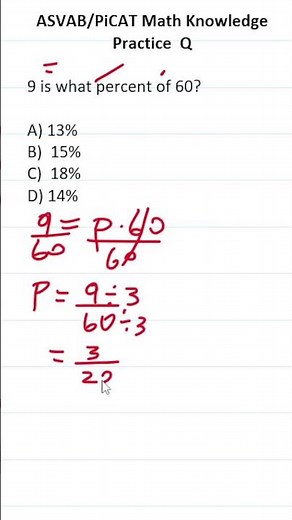 ASVAB/PiCAT Math Knowledge
Practice Q
9 is what percent of 60?
A) 13%
B) 15%
C) 18%
D) 14%
9/60 = P·60/60
P = 9÷3/60÷3
= 3/20